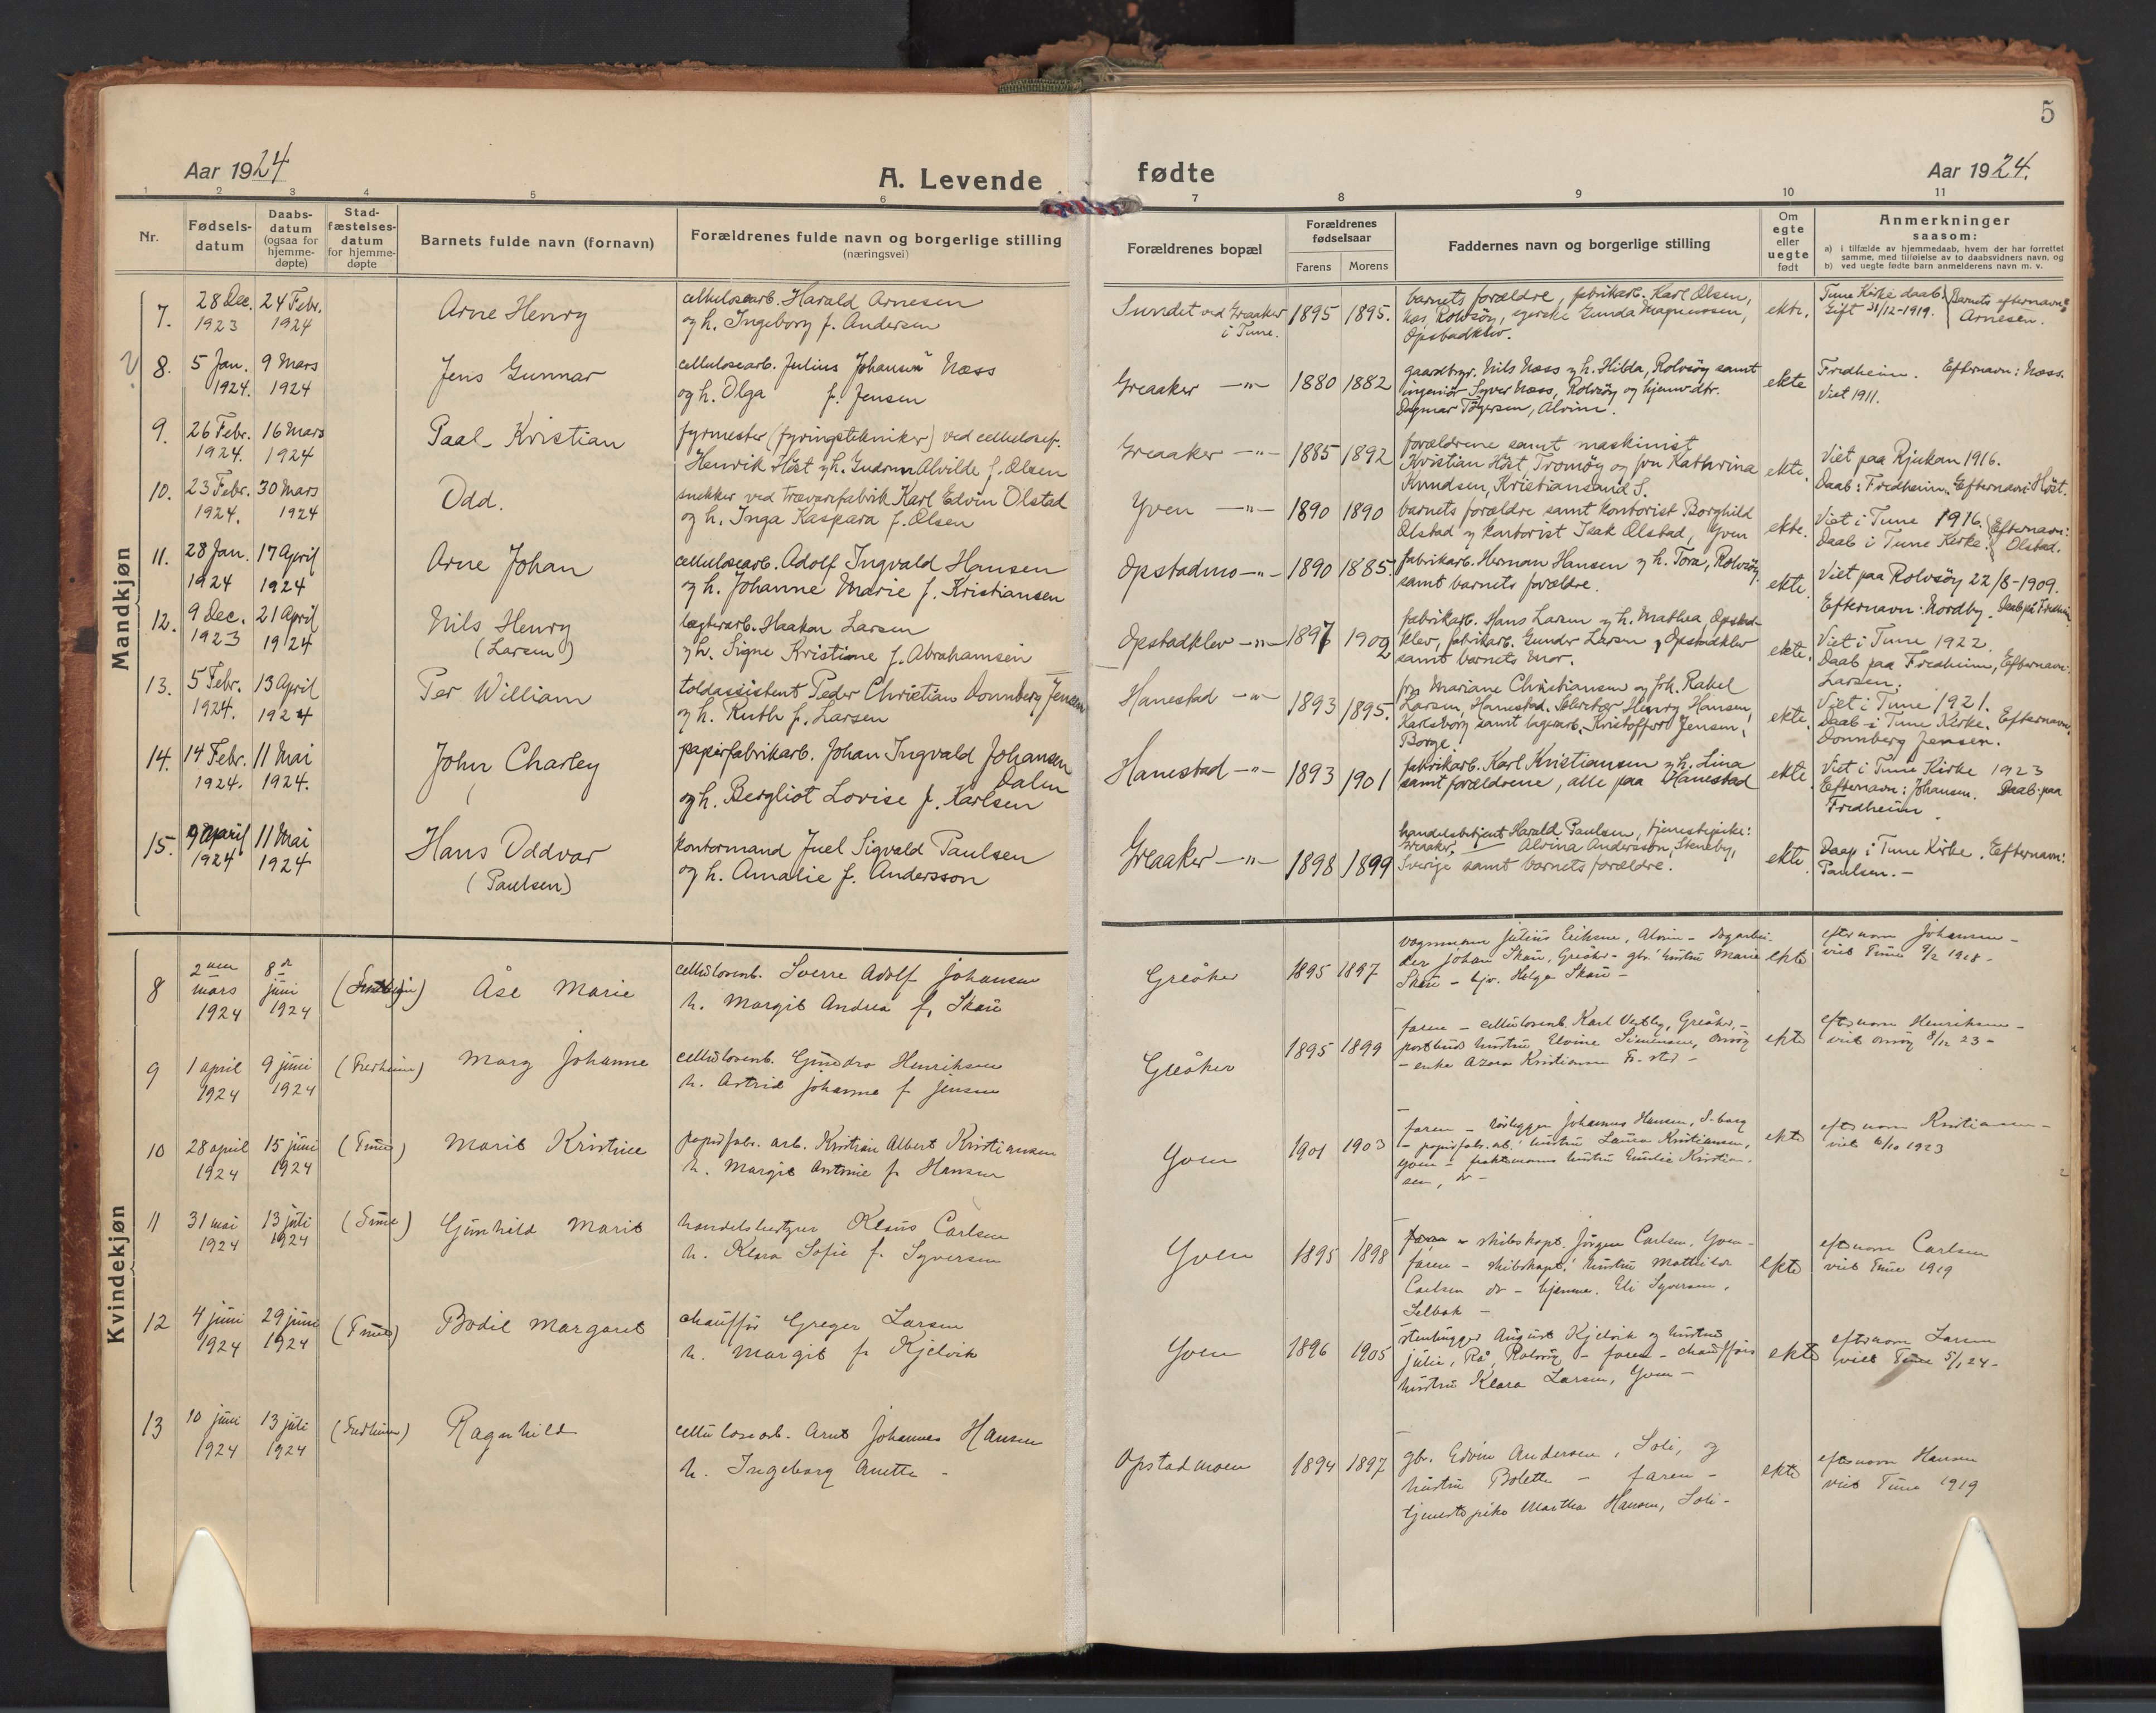 5
Aar 1924
A. Levende
fødte
Aar 1924.
1 2 3 4 5 6 7 8 9 10 11
Nr.
Fødsels-
datum
Daabs-
datum
(ogsaa for
hjemme-
døpte)
Stad-
fæstelses-
datum
for hjemme-
døpte
Barnets fulde navn (fornavn)
Forældrenes fulde navn og borgerlige stilling
(næringsvei)
Forældrenes bopæl
Forældrenes
fødselsaar
Farens Morens
Faddernes navn og borgerlige stilling
Om
egte
eller
uegte
født
Anmerkninger
saasom:
a) i tilfælde av hjemmedaab, hvem der har forrettet
samme, med tilføielse av to daabsvidners navn, og
b) ved uegte fødte barn anmelderens navn m. v.
Mandkjøn
7. 28 Dec. 1923 24 Febr. 1924 Arne Henry
cellulosearb. Harald Arnesen
og h. Ingeborg f. Andersen
Sundet ved Greaaker
i Tune.
1895 1895.
barnets forældre, fabrikarb. Karl Olsen,
Rolvsöy, Gunda Magnussen,
Opstadklev.
ekte.
Tune Kirke daab. Barnets efternavn:
Gift 31/12-1919. Arnesen.
8. 5 Jan. 1924. 9 Mars 1924 Jens Gunnar
cellulosearb. Julius Johansen Næss
og h. Olga f. Jensen
Greaaker —"—
1880 1882
gaardbrgr. Nils Næss og h. Hilda, Rolvsöy samt
ingeniör Syver Næss, Rolvsöy og hjemv. dtr.
Dagmar Tögersen, Alvim.
ekte
Fredheim. Efternavn: Næss.
Viet 1911.
9. 26 Febr. 1924. 16 Mars 1924 Paal Kristian
fyrmester (fyringstekniker) ved cellulosef.
Henrik Höst og h. Gudrun Alvilde f. Olsen
Greaaker —"—
1885 1892
forældrene samt maskinist
Kristian Höst, Tromöy og fru Kathrina
Knudsen, Kristiansand S.
ekte.
Viet paa Rjukan 1916.
Daab: Fredheim. Efternavn: Höst.
10. 23 Febr. 1924. 30 Mars 1924 Odd.
snekker ved trævarefabrik Karl Edvin Olstad
og h. Inga Kaspara f. Olsen
Yven —"—
1890 1890
barnets forældre samt kontorist Borghild
Olstad og kontorist Isak Olstad, Yven
ekte.
Viet i Tune 1916. Efternavn:
Daab i Tune Kirke. Olstad.
11. 28 Jan. 1924 17 April 1924 Arne Johan
cellulosearb. Adolf Ingvald Hansen
og h. Johanne Marie f. Kristiansen
Opstadmo —"—
1890 1885.
fabrikarb. Herman Hansen og h. Tora, Rolvsöy,
samt barnets forældre.
ekte.
Viet paa Rolvsöy 22/8-1909.
Efternavn: Nordby. Daab på Fredheim
12. 9 Dec. 1923 21 April 1924 Nils Henry
(Larsen)
lægterarb. Haakon Larsen
og h. Signe Kristine f. Abrahamsen
Opstadklev —"—
1897 1902
fabrikarb. Hans Larsen og h. Mathea, Opstad-
klev, fabrikarb. Gunder Larsen, Opstadklev
samt barnets mor.
ekte.
Viet i Tune 1922.
Daab paa Fredheim, Efternavn:
Larsen.
13. 5 Febr. 1924. 13 April 1924 Per William
toldassistent Peder Christian Donnberg Jensen
og h. Ruth f. Larsen
Hanestad —"—
1893 1895.
fru Mariane Christiansen og frk. Rakel
Larsen, Hanestad. Henry Hansen,
Karlsborg samt Kristoffer Jensen,
Borge.
ekte.
Viet i Tune 1921.
Daab i Tune Kirke. Efternavn:
Donnberg Jensen.
14. 14 Febr. 1924. 11 Mai 1924. John Charley
papirfabrikarb. Johan Ingvald Johansen
Dalen
og h. Bergliot Lovise f. Karlsen
Hanestad —"—
1893 1901
fabrikarb. Karl Kristiansen og h. Lina
samt forældrene, alle paa Hanestad
ekte.
Viet i Tune Kirke 1923
Efternavn: Johansen. Daab paa
Fredheim.
15. 9 April 1924 11 Mai 1924 Hans Oddvar
(Paulsen)
kontormand Juel Sigvald Paulsen
og h. Amalie f. Andersson
Greaaker —"—
1898 1899
handelsbetjent Harald Paulsen, tjenestepike:
Greaaker, Alvina Andersson, Stenby,
Sverige samt barnets forældre.
ekte.
Daap i Tune Kirke. Efternavn:
Paulsen.—
Kvindekjøn
8 2nen mars 1924 8de juni 1924 (Fredheim) Åse Marie
cellulosearb. Sverre Adolf Johansen
h. Margit Andrea f. Skau
Greåker
1895 1897
vognmann Julius Eriksen, Alvim - dagarbei-
der Johan Skau, Greåker - gbr. hustru Marie
Skau - hjv. Helga Skau -
ekte
efternavn Johansen -
viet Tune 9/2 1918 -
9 1 april 1924 9 juni 1924 (Fredheim) Mary Johanne
cellulosearb. Gunder Henriksen
h. Astrid Johanne f. Jensen
Greåker
1895 1899
faren - cellulosearb. Karl Vestby, Greåker, -
postbud hustru Elvine Simensen, Onsöy
- enke Azora Kristiansen Fr. stad -
ekte
efternavn Henriksen -
viet Onsöy 8/12 23 -
10 28 april 1924 15 juni 1924 (Tune) Marit Kristine
papirfabr. arb. Kristian Albert Kristiansen
h. Margit Antonie f. Hansen
Yven
1901 1903
faren - Johannes Hansen, S-borg
- papirfabr. arb. hustru Laura Kristiansen,
Yven - hustru Emilie Kristian-
sen, do -
ekte
efternavn Kristiansen -
viet 6/10 1923
11 31 mai 1924 13 juli 1924 (Tune) Gunhild Marit
handelsbestyrer Klaus Carlsen
h. Klara Sofie f. Syversen
Yven
1895 1898
faren - skibskapt. Jörgen Carlsen, Yven -
faren - skibskapt. hustru Mathilde
Carlsen do - hjemme. Eli Syversen,
Selbak -
ekte
efternavn Carlsen
viet Tune 1919
12 4 juni 1924 29 juni 1924 (Tune) Bodil Margaret
chaufför Greger Larsen
h. Margit f. Kjelvik
Yven
1896 1905
stenhugger August Kjelvik og hustru
Julie, Rå, Rolvsöy - faren - chaufförs
hustru Klara Larsen, Yven -
ekte
efternavn Larsen
viet Tune 5/1 24 -
13 10 juni 1924 13 juli 1924 (Fredheim) Ragnhild
cellulosearb. Arnt Johannes Hansen
h. Ingeborg Anette -
Opstadmoen
1894 1897
gbr. Edvin Andersen, Soli, og
hustru Bolette - faren -
tjenestepike Martha Hansen, Soli -
ekte
efternavn Hansen
viet Tune 1919